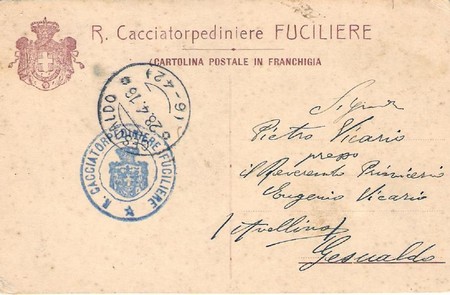 R. Cacciatorpediniere FUCILIERE
CARTOLINA POSTALE IN FRANCHIGIA
GESUALDO
28.4.16
R. CACCIATORPEDINIERE FUCILIERE
Signor
Pietro Vicario
presso
il Reverendo Primicerio
Eugenio Vicario
(Avellino)
Gesualdo